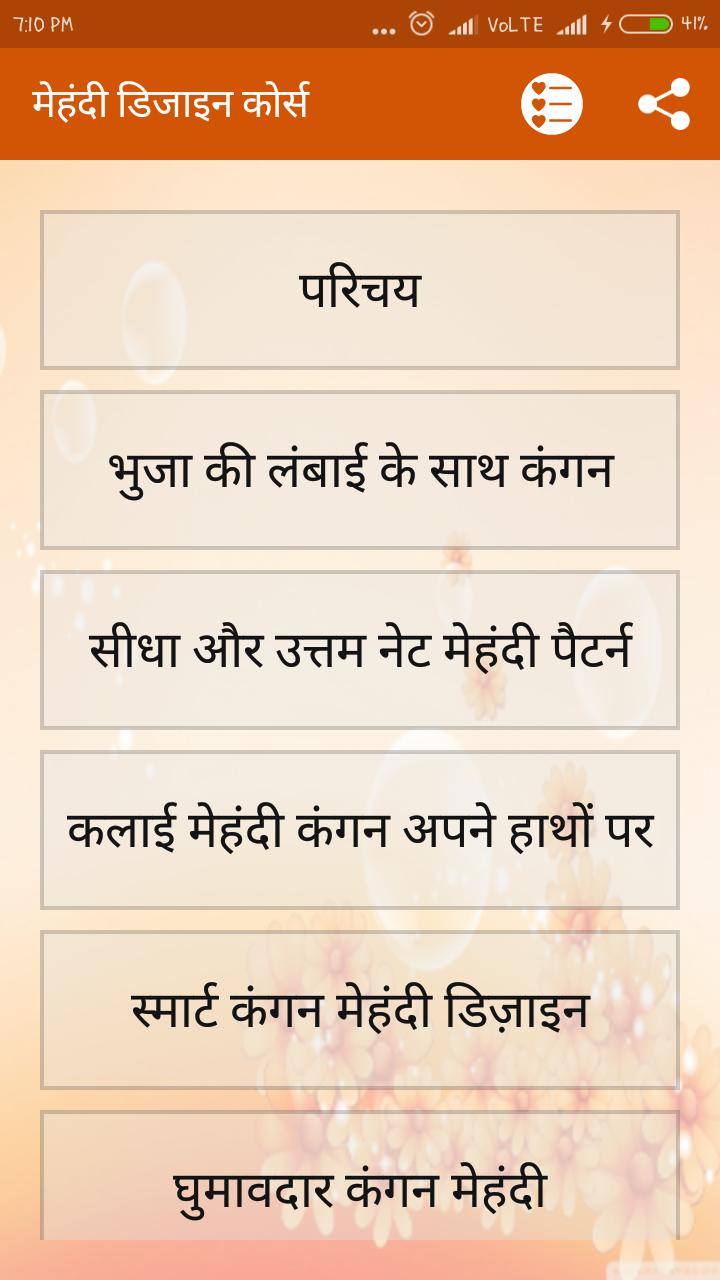 7:10 PM ... VoLTE 41%
मेहंदी डिजाइन कोर्स
परिचय
भुजा की लंबाई के साथ कंगन
सीधा और उत्तम नेट मेहंदी पैटर्न
कलाई मेहंदी कंगन अपने हाथों पर
स्मार्ट कंगन मेहंदी डिज़ाइन
घुमावदार कंगन मेहंदी